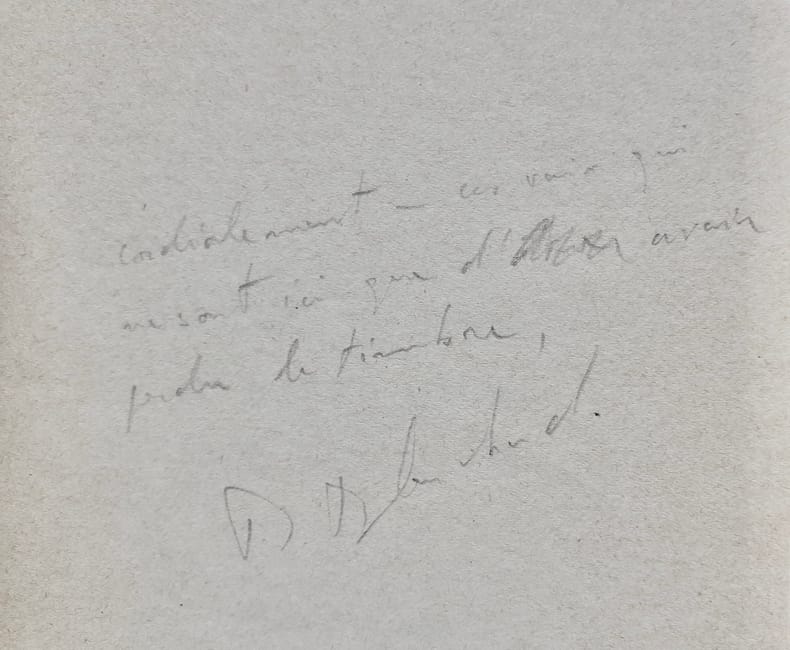 cordialement – ces voix qui
ne sont ici que d' avoir
perdu le timbre,